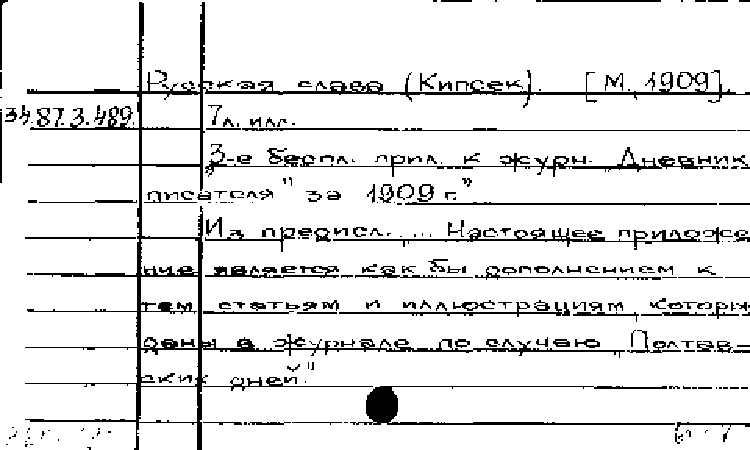 Русская слава (Кипсек). [М, 1909].
34.87.3.489 7л. илл.
3-е беспл. прил. к журн. Дневник
писателя" за 1909 г."
Из предисл.... Настоящее приложе
ние является как бы дополнением к
тем статьям и иллюстрациям, которы
даны в журнале по случаю „Полтав-
ских дней"